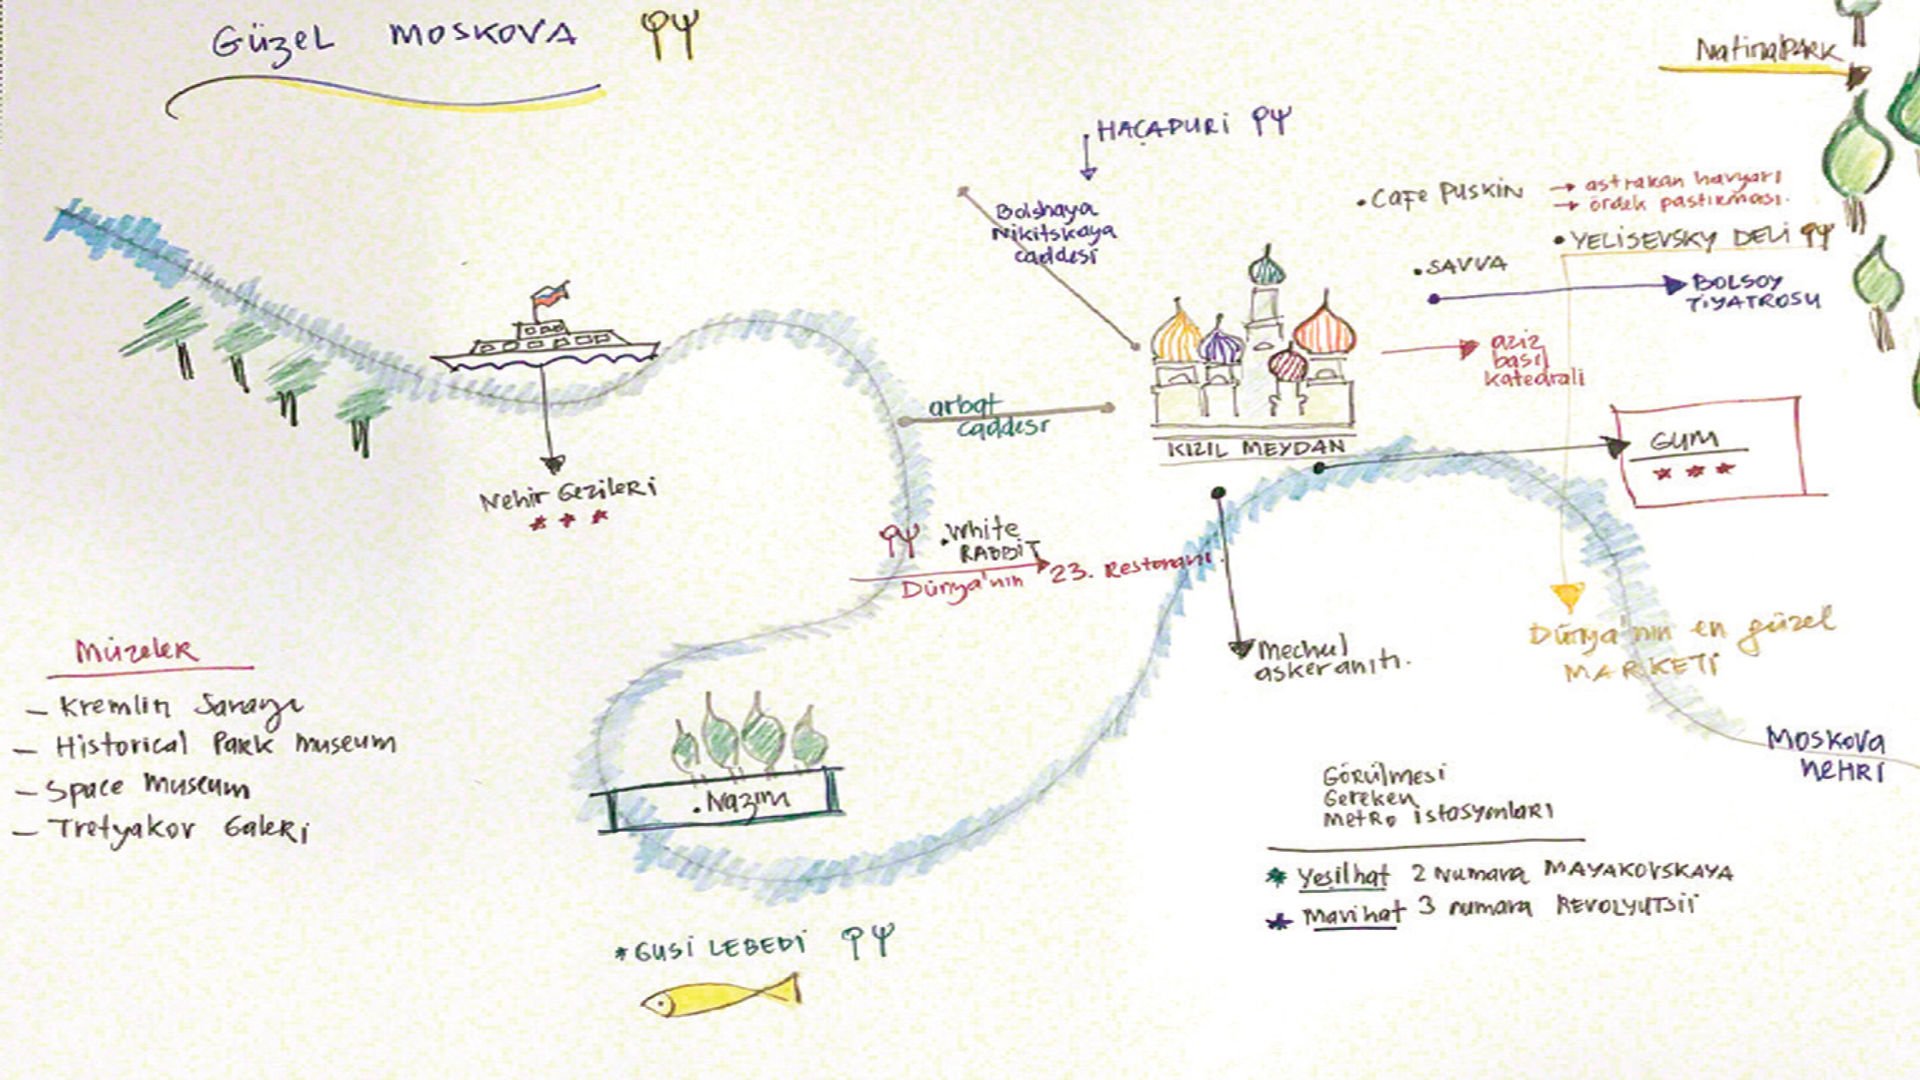 GüzeL MOSKOVA
NatinalPARK
HAÇAPURİ
Bolshaya
Nikitskaya
caddesi
.CAFE PUSKİN → astrakan havyarı
→ ördek pastırması.
•YELİSEVSKY DELİ
•SAVVA
BOLSOY
TİYATROSU
aziz
basil
katedrali
arbat
caddesi
KIZIL MEYDAN
GUM
Nehir GeziLeRi
.White
RABBİT
Dünya'nın 23. Restoranı.
Mechul
askeranıtı.
Dünya'nın en güzel
MARKETİ
Müzeler
– Kremlin Sarayı
– Historical Park museum
– Space museum
– Tretyakov Galeri
.Nazım
MOSKOVA
NEHRİ
GÖRÜlmesi
Gereken
MetRo istosyonlaRı
* Yeşilhat 2 Numara MAYAKOVSKAYA
* Mavihat 3 numara REVOLYUTSİİ
*GUSİ LEBEDİ